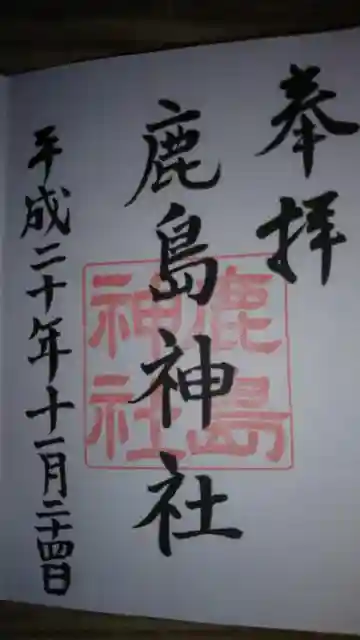 奉拝
鹿島神社
平成二十年十一月二十四日
鹿島
神社